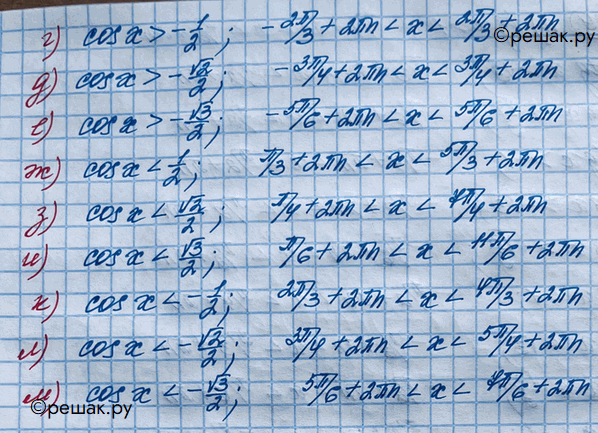 г) cos x > -1/2; -2π/3 + 2πn < x < 2π/3 + 2πn
©решак.ру
д) cos x > -√2/2; -3π/4 + 2πn < x < 3π/4 + 2πn
е) cos x > -√3/2; -5π/6 + 2πn < x < 5π/6 + 2πn
ж) cos x < 1/2; π/3 + 2πn < x < 5π/3 + 2πn
з) cos x < √2/2; π/4 + 2πn < x < 7π/4 + 2πn
и) cos x < √3/2; π/6 + 2πn < x < 11π/6 + 2πn
к) cos x < -1/2; 2π/3 + 2πn < x < 4π/3 + 2πn
л) cos x < -√2/2; 3π/4 + 2πn < x < 5π/4 + 2πn
м) cos x < -√3/2; 5π/6 + 2πn < x < 7π/6 + 2πn
©решак.ру